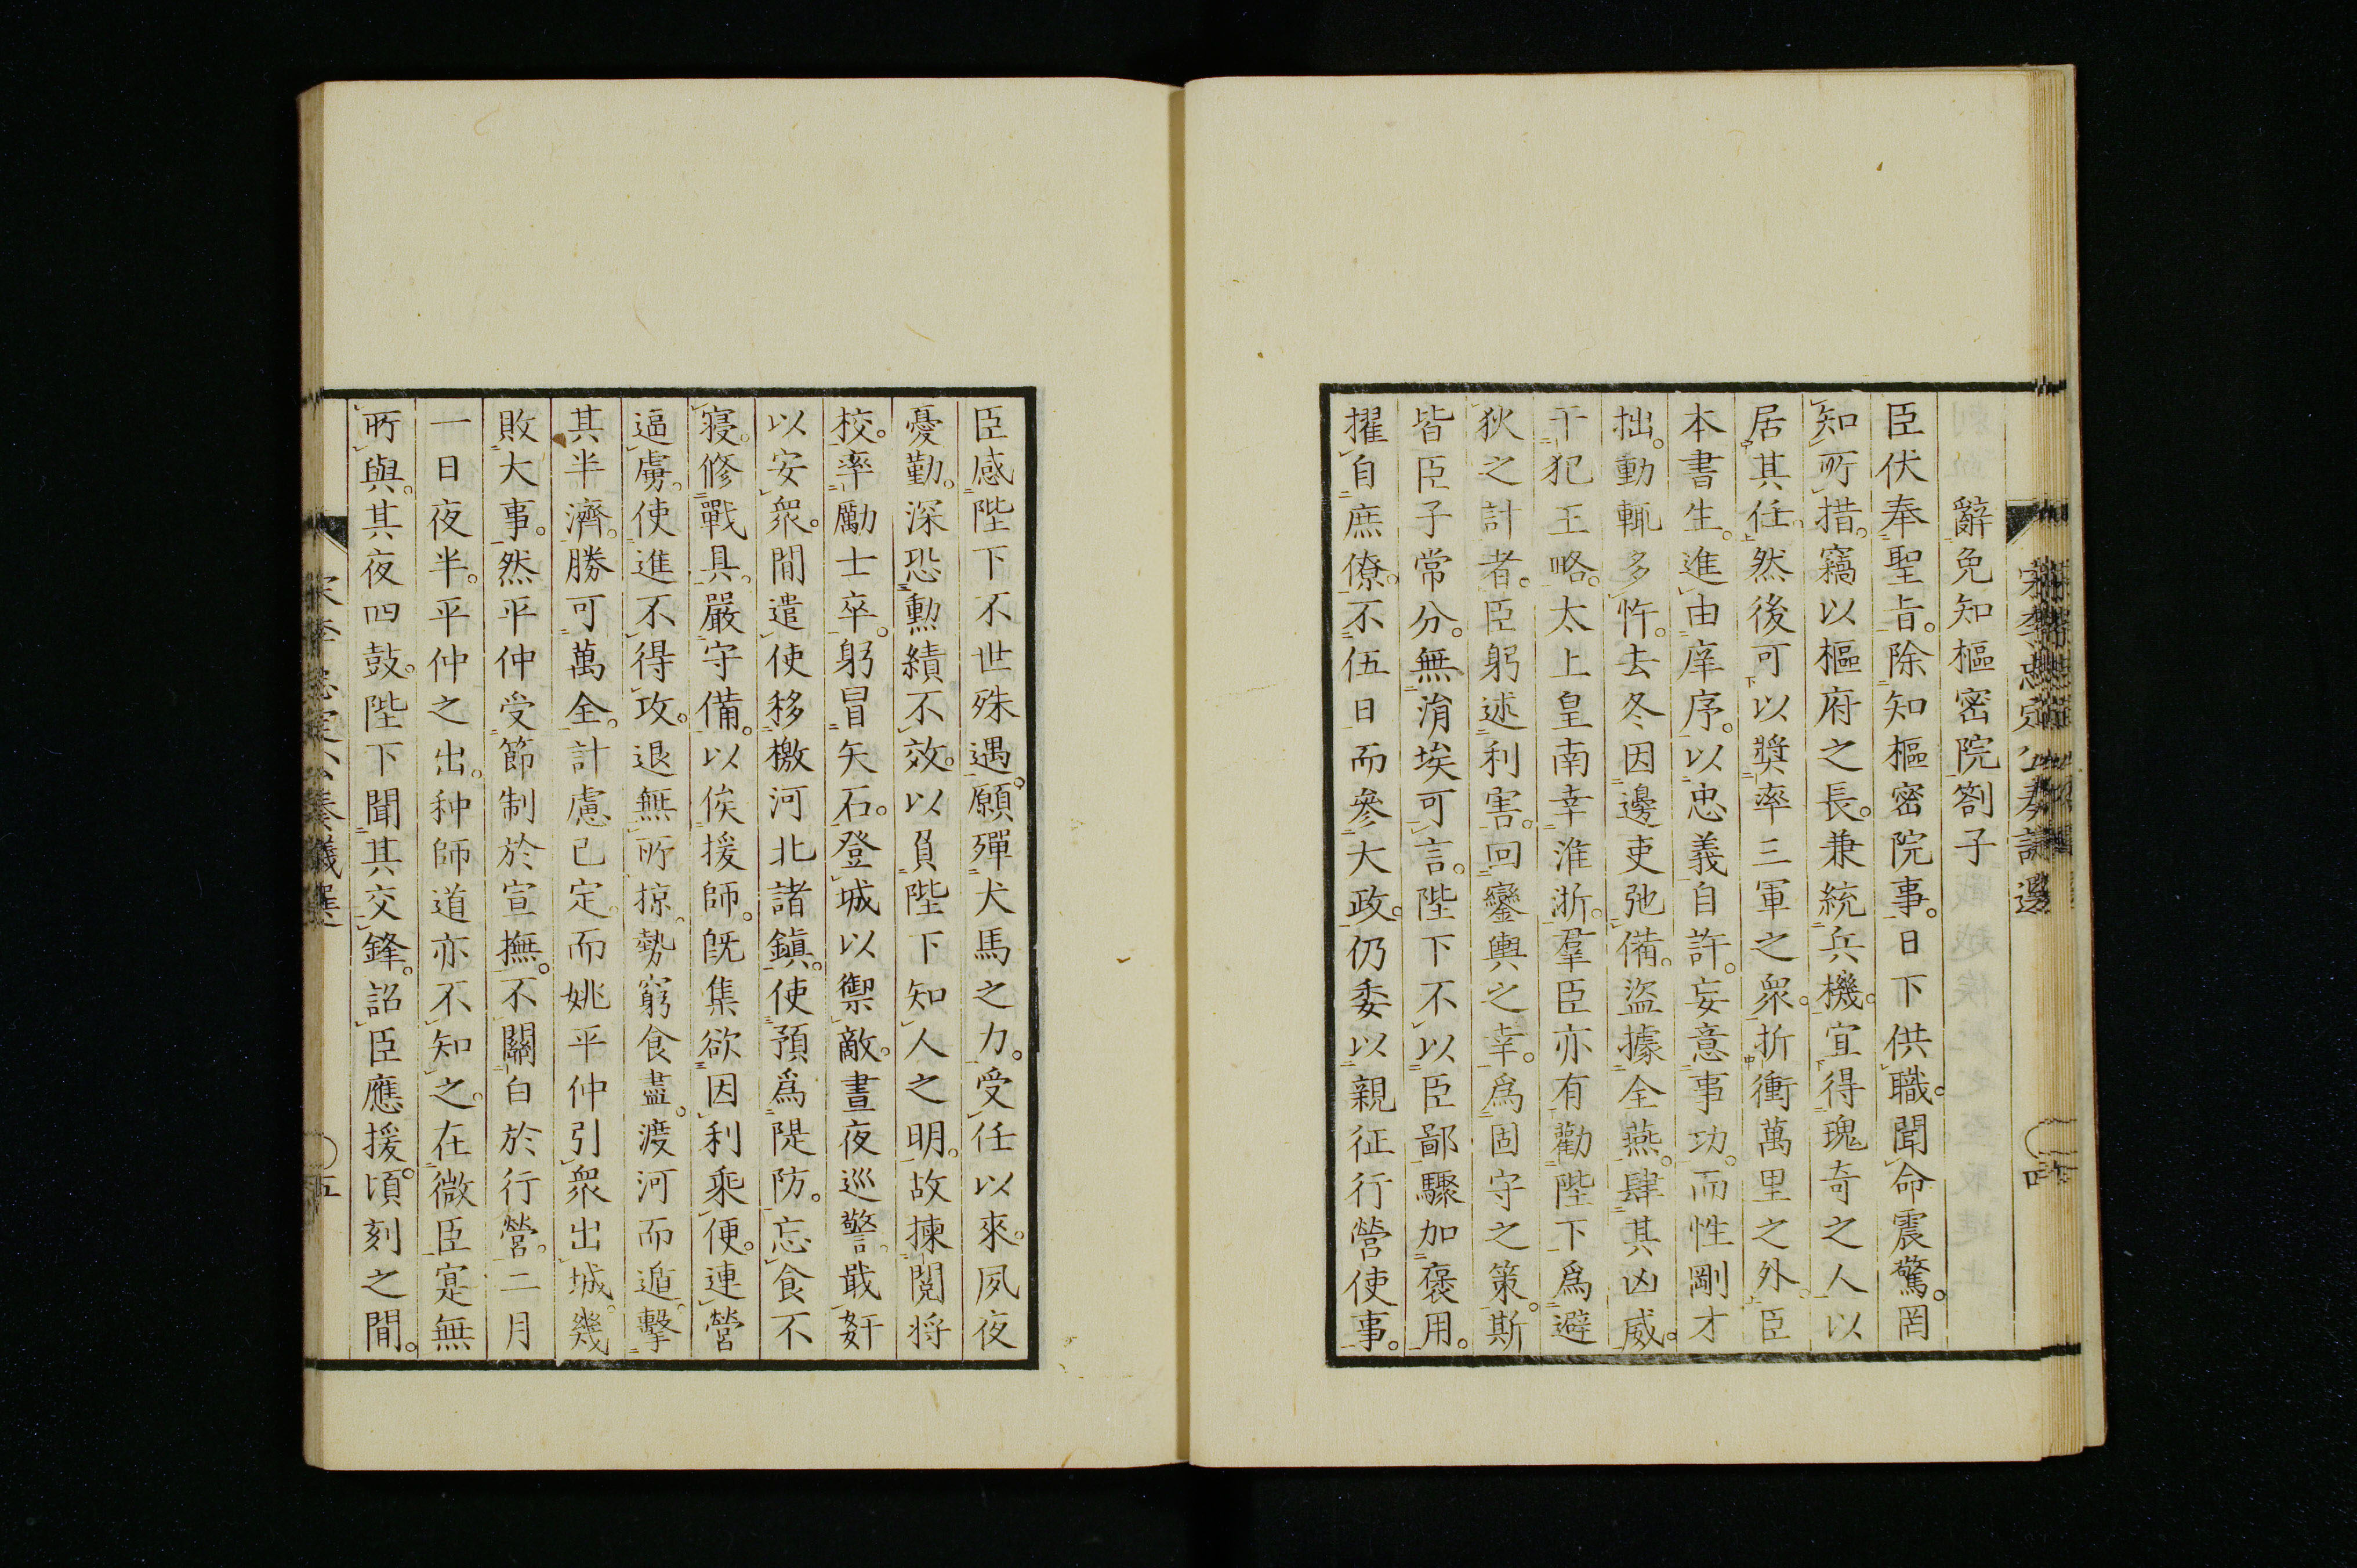 辭免知樞密院劄子
臣伏奉聖旨。除知樞密院事。日下供職。聞命震驚。罔
知所措。竊以樞府之長。兼統兵機。宜得瑰奇之人以
居其任。然後可以奬率三軍之衆。折衝萬里之外。臣
本書生。進由庠序。以忠義自許。妄意事功。而性剛才
拙。動輒多忤。去冬因邊吏弛備。盜據全燕。肆其凶威。
干犯王略。太上皇南幸淮浙。羣臣亦有勸陛下爲避
狄之計者。臣躬述利害。回鑾輿之幸。爲固守之策。斯
皆臣子常分。無涓埃可言。陛下不以臣鄙驟加褒用。
擢自庶僚。不伍日而參大政。仍委以親征行營使事。
臣感陛下不世殊遇。願殫犬馬之力。受任以來。夙夜
憂勤。深恐勲績不效。以負陛下知人之明。故揀閱將
校。率勵士卒。躬冒矢石。登城以禦敵。晝夜巡警。戢姧
以安衆。間遣使移檄河北諸鎭。使預爲隄防。忘食不
寑。修戰具。嚴守備。以俟援師。旣集欲因利乘便。連營
逼虜。使進不得攻。退無所掠。勢窮食盡。渡河而遁。擊
其半濟。勝可萬全。計慮已定。而姚平仲引衆出城。幾
敗大事。然平仲受節制於宣撫。不關白於行營。二月
一日夜半。平仲之出。种師道亦不知之。在微臣寔無
所與。其夜四鼓。陛下聞其交鋒。詔臣應援。頃刻之間。
宋李忠定公奏議選
五